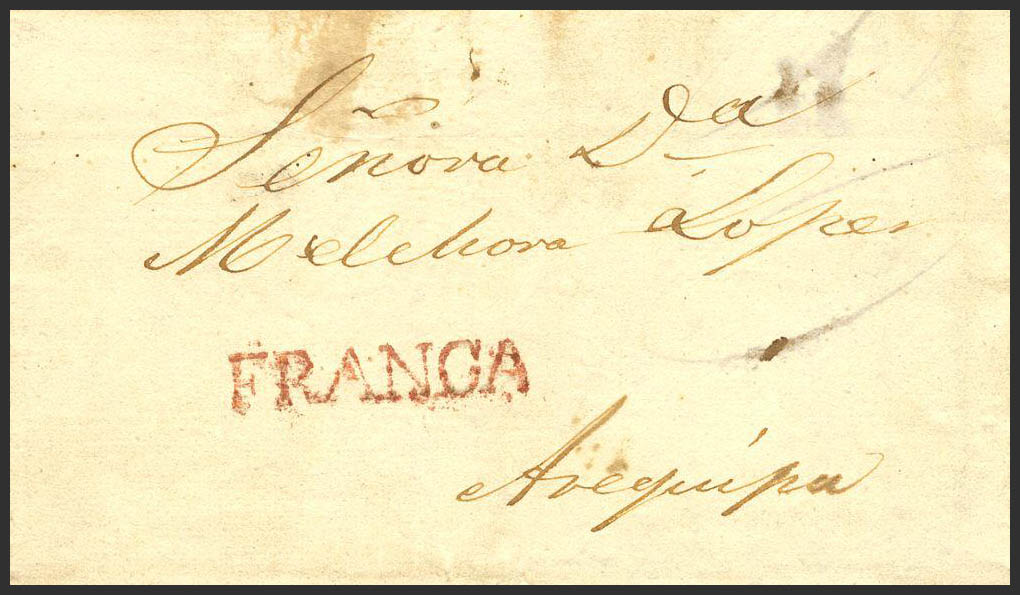 Señora Da
Melchora Lopez
FRANCA
Arequipa